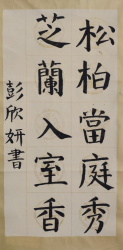 松柏當庭秀
芝蘭入室香
彭欣妍書